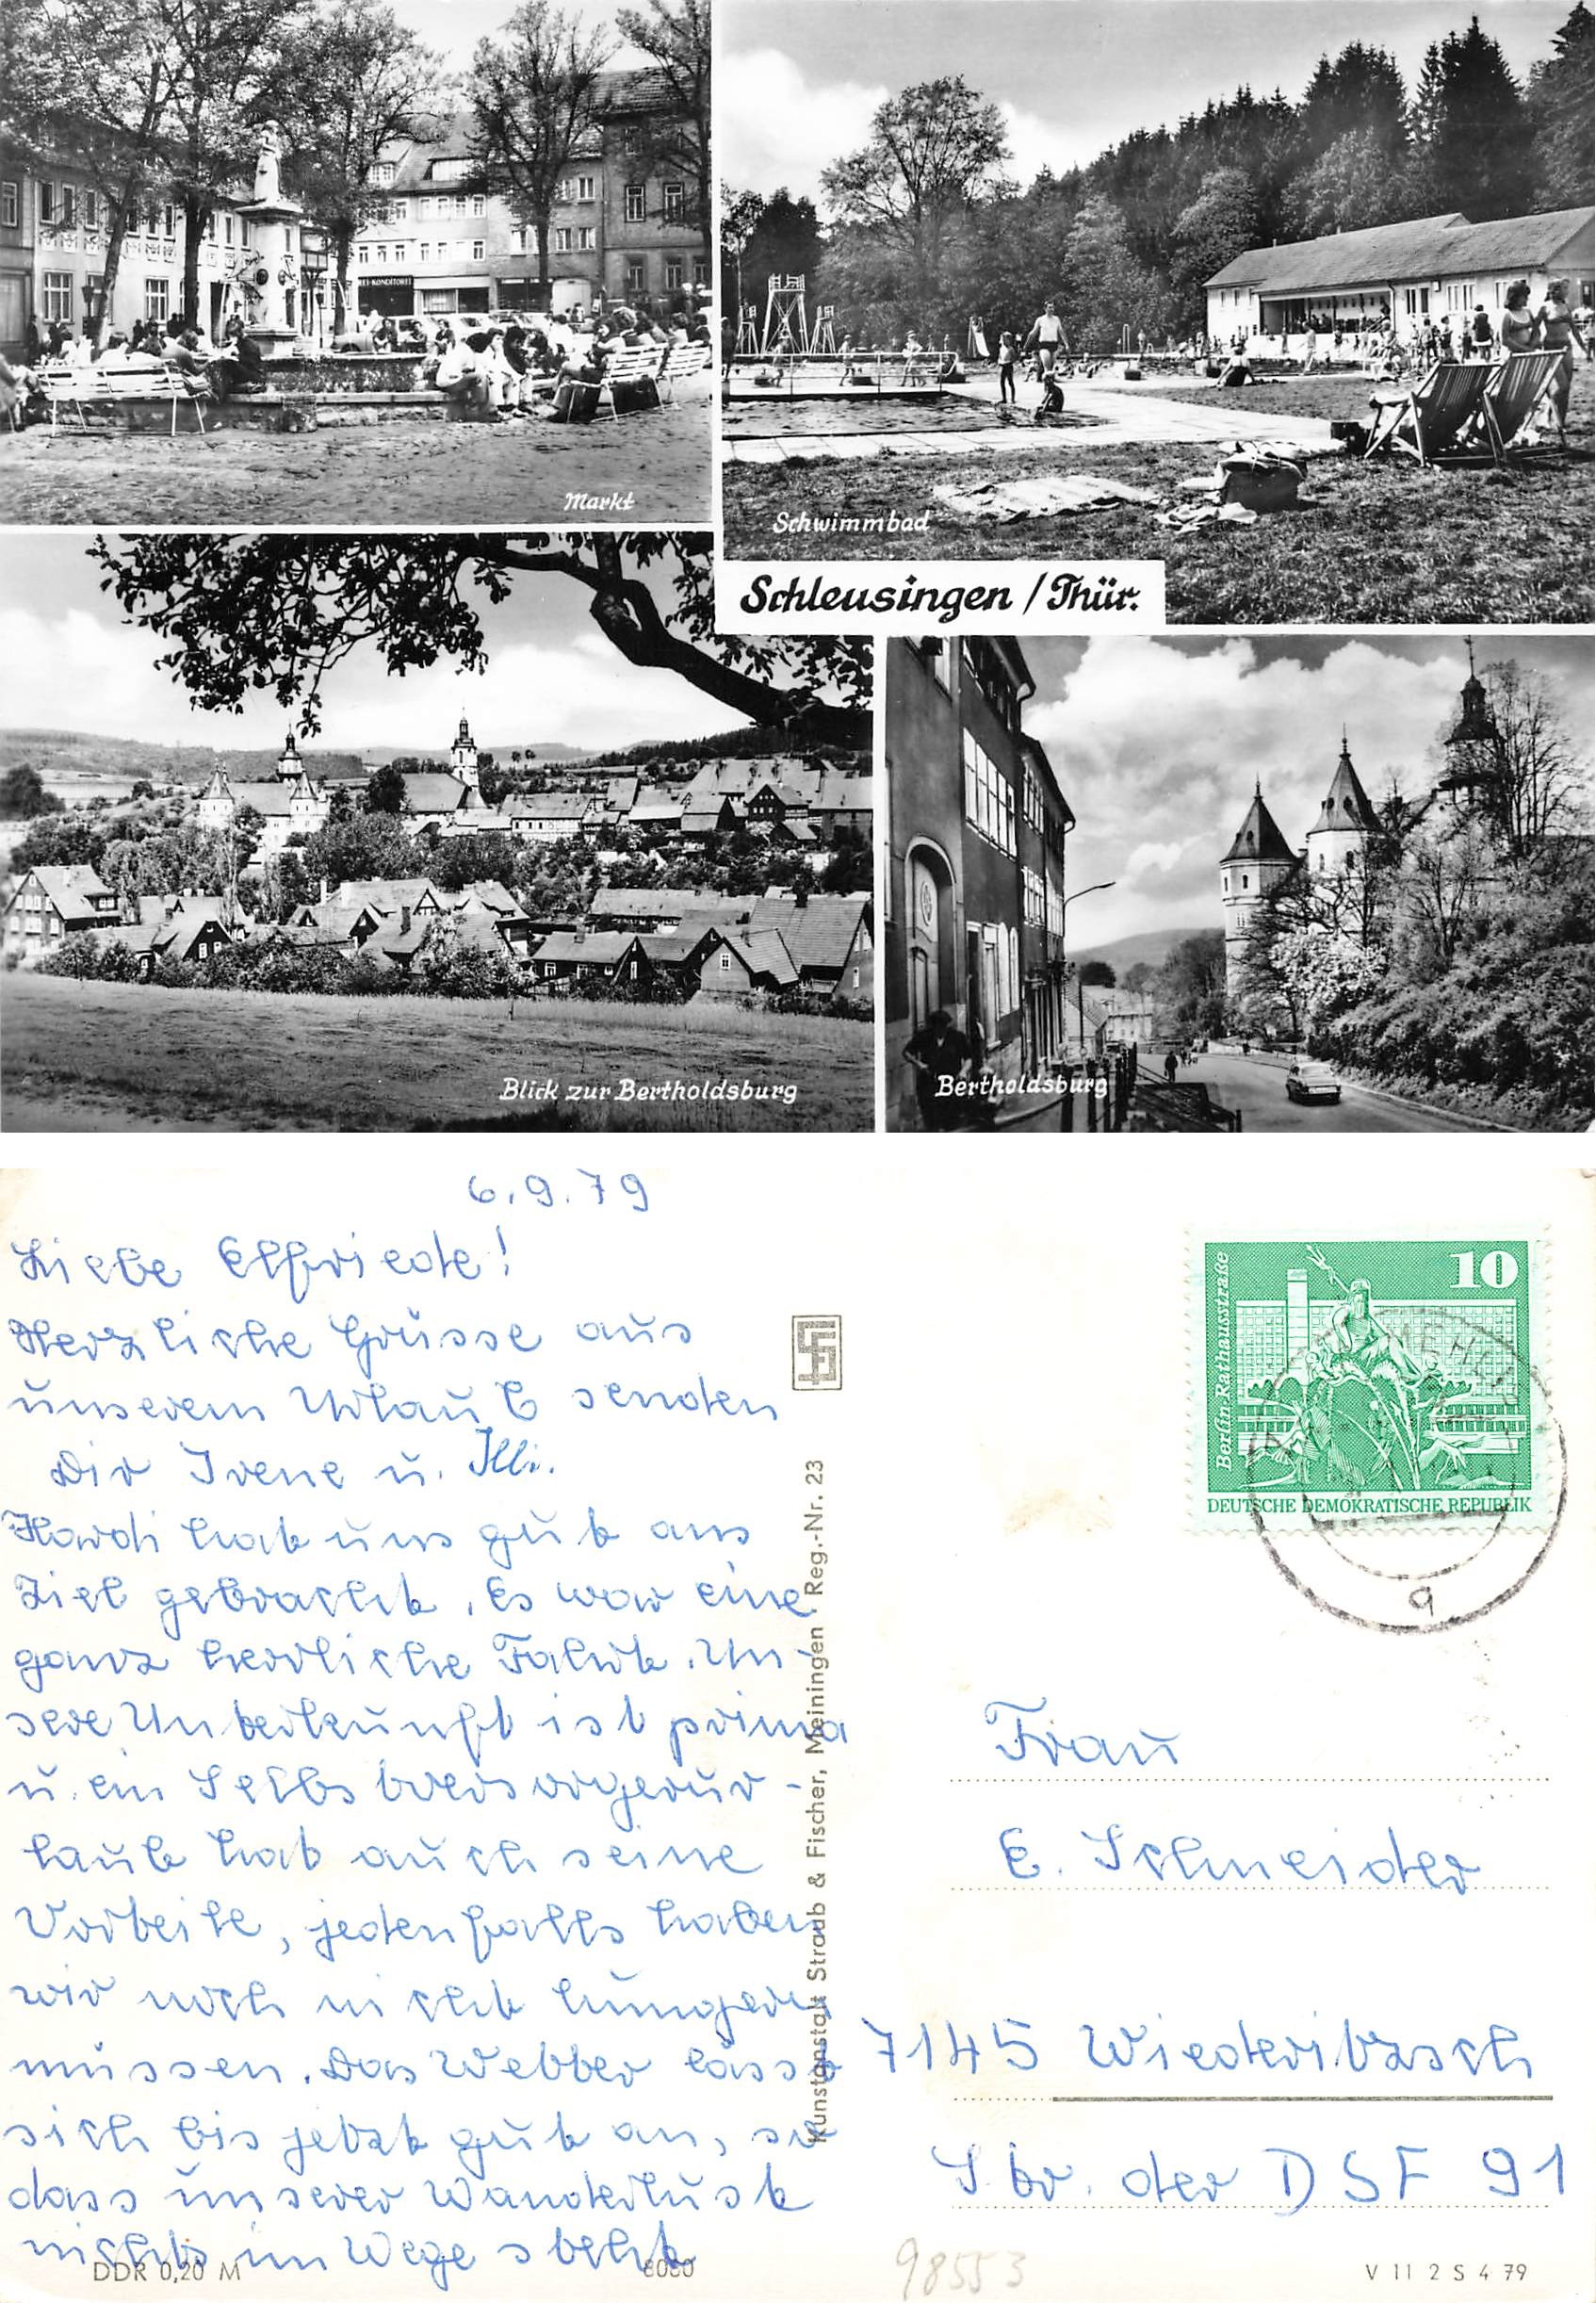 EI-KONDITOREI
Markt
Schwimmbad
Schleusingen / Thür.
Blick zur Bertholdsburg
Bertholdsburg
6.9.79
Liebe Elfriede!
Herzliche Grüsse aus
unserem Urlaub senden
Dir Irene u. Illi.
Hardi hat uns gut ans
Ziel gebracht. Es war eine
ganz herrliche Fahrt. Un-
sere Unterkunft ist prima
u. ein Selbstversorgerur-
laub hat auch seine
Vorteile, jedenfalls haben
wir noch nicht hungern
müssen. Das Wetter lässt
sich bis jetzt gut an, so
dass unserer Wanderlust
nichts im Wege steht
DDR 0,20 M
8080
Kunstanstalt Straub & Fischer, Meiningen · Reg.-Nr. 23
Berlin-Rathausstraße
10
DEUTSCHE DEMOKRATISCHE REPUBLIK
a
Frau
E. Schneider
7145 Wiederitzsch
Str. der DSF 91
98553
V 11 2 S 4 79